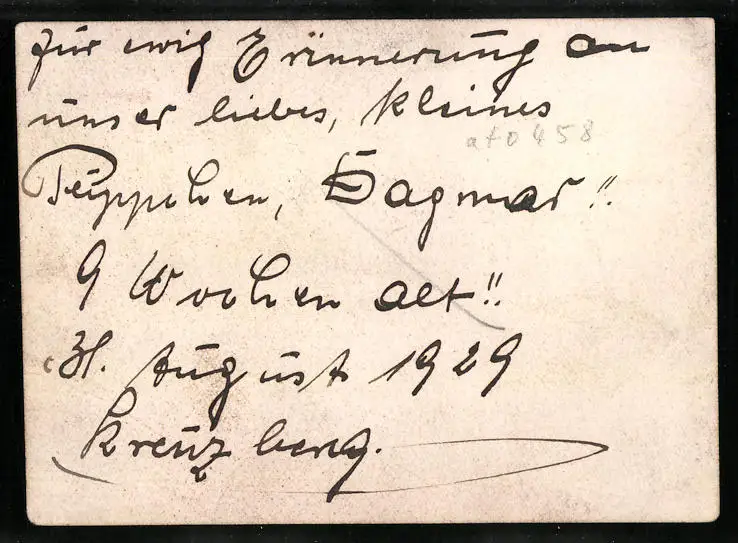 für ewig Erinnerung an
unser liebes, kleines
ato458
Püppchen, Dagmar!!
9 Wochen alt!!
31. August 1929
Kreuzberg.